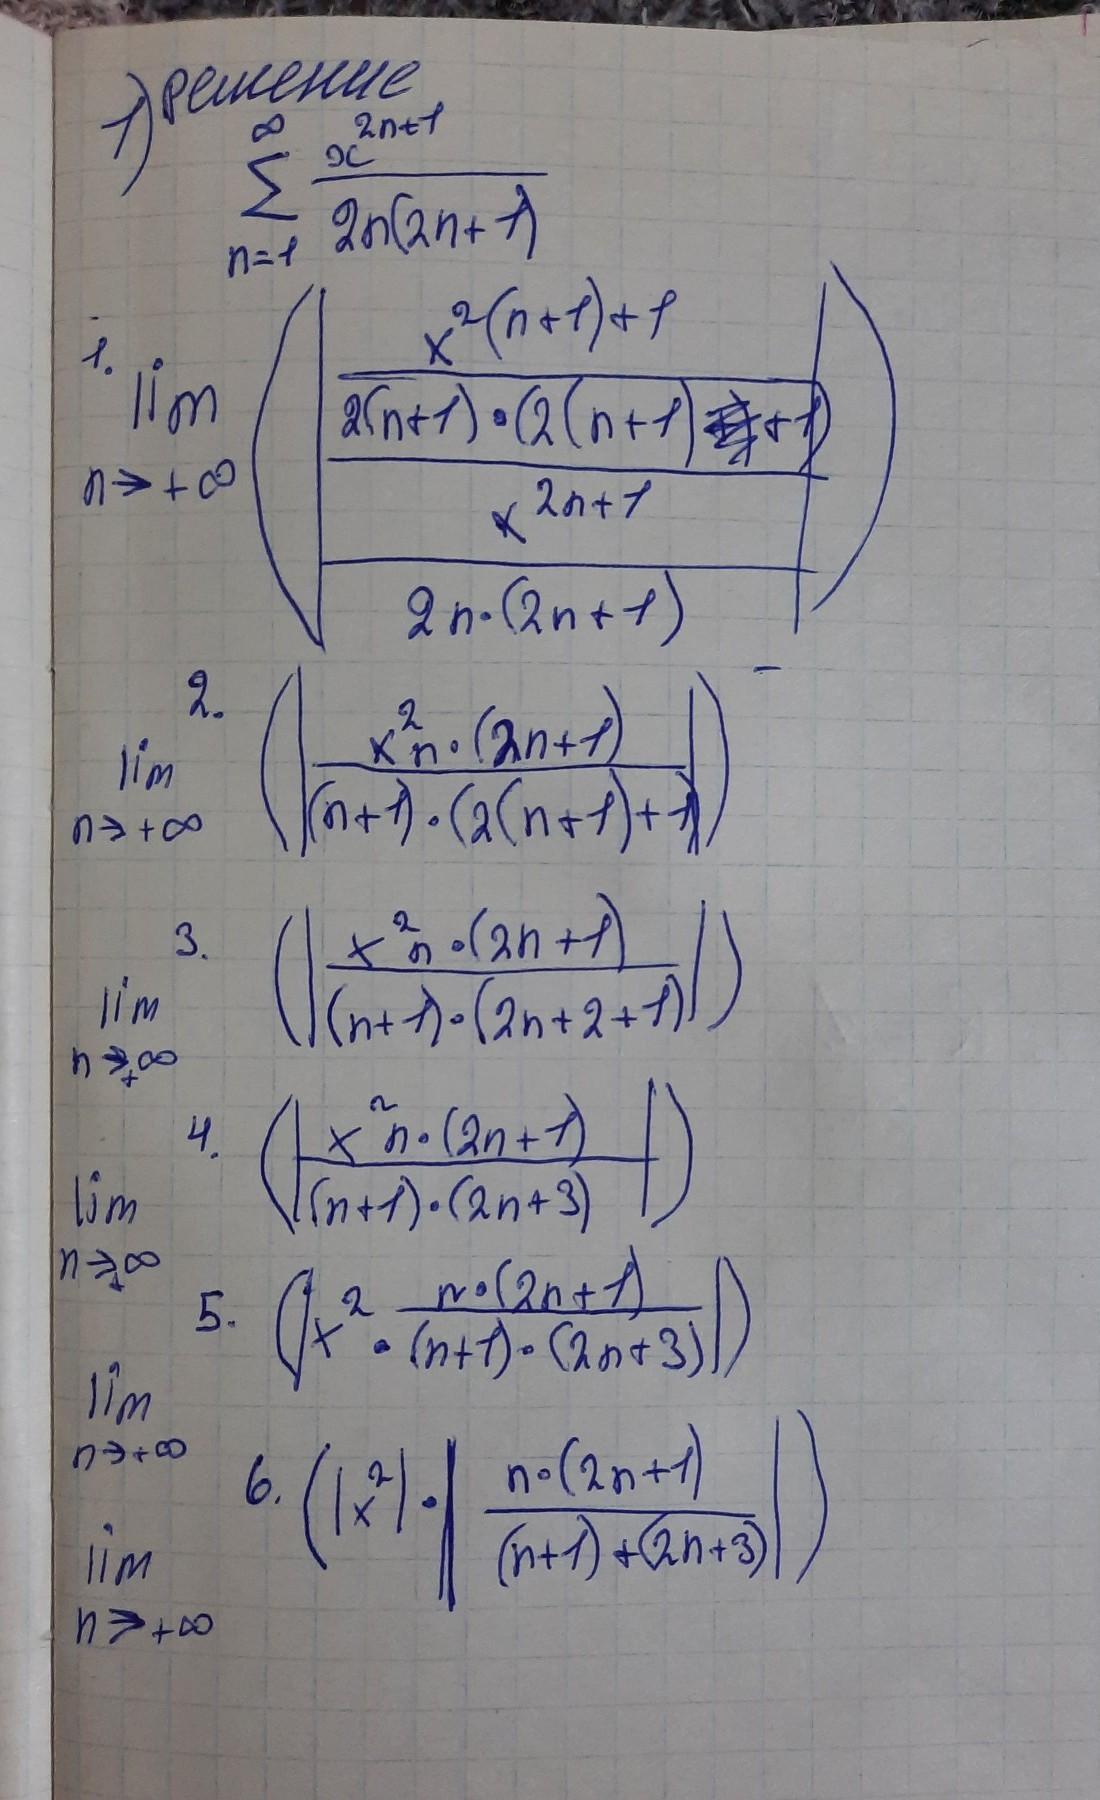 1) решение
∞
∑ x^{2n+1} / 2n(2n+1)
n=1
1. lim n→+∞ (| x^{2(n+1)+1} / 2(n+1)·(2(n+1)+1) / x^{2n+1} / 2n·(2n+1) |)
2. lim n→+∞ (| x^2 n·(2n+1) / (n+1)·(2(n+1)+1) |)
3. lim n→+∞ (| x^2 n·(2n+1) / (n+1)·(2n+2+1) |)
4. lim n→+∞ (| x^2 n·(2n+1) / (n+1)·(2n+3) |)
5. lim n→+∞ (| x^2 · n·(2n+1) / (n+1)·(2n+3) |)
6. lim n→+∞ (|x^2| · | n·(2n+1) / (n+1)+(2n+3) |)